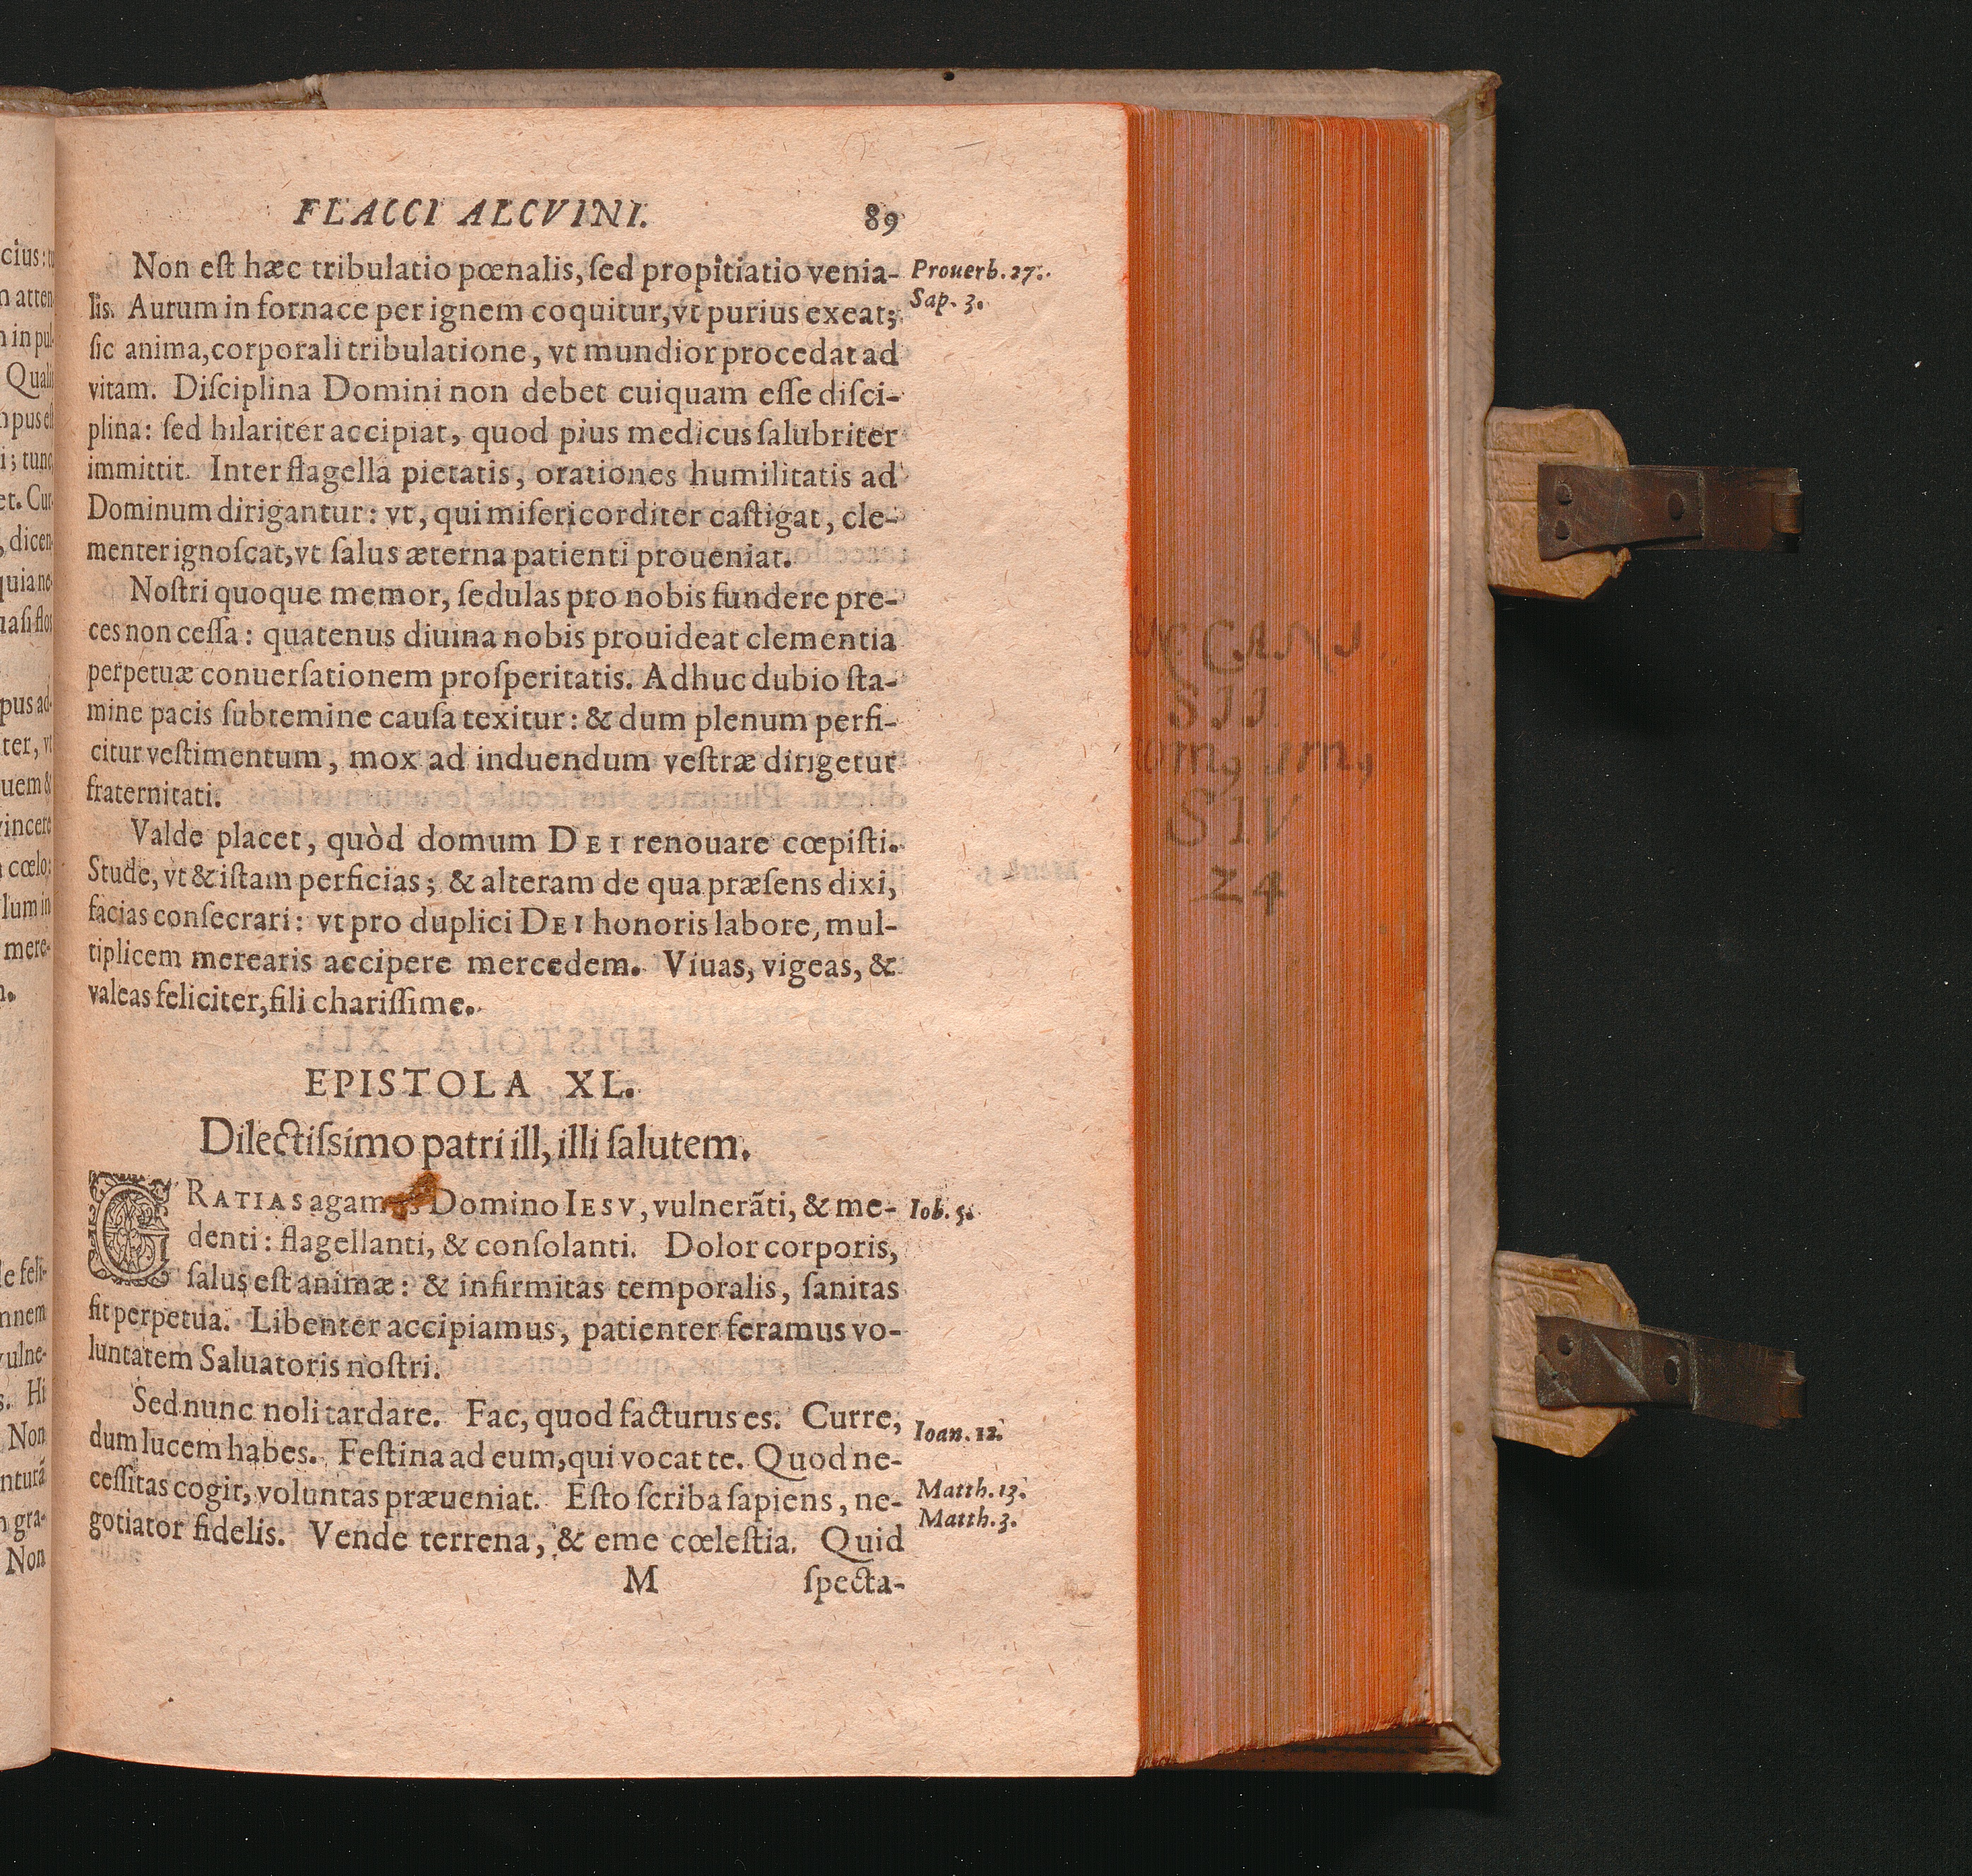 FLACCI ALCVINI. 89
Non eſt hæc tribulatio pœnalis, ſed propitiatio venia- Prouerb. 27.
lis. Aurum in fornace per ignem coquitur, vt purius exeat; Sap. 3.
ſic anima, corporali tribulatione, vt mundior procedat ad
vitam. Diſciplina Domini non debet cuiquam eſſe diſci-
plina: ſed hilariter accipiat, quod pius medicus ſalubriter
immittit. Inter flagella pietatis, orationes humilitatis ad
Dominum dirigantur: vt, qui miſericorditer caſtigat, cle-
menter ignoſcat, vt ſalus æterna patienti proueniat.
Noſtri quoque memor, ſedulas pro nobis fundere pre-
ces non ceſſa: quatenus diuina nobis prouideat clementia
perpetuæ conuerſationem proſperitatis. Adhuc dubio ſta-
mine pacis ſubtemine cauſa texitur: & dum plenum perfi-
citur veſtimentum, mox ad induendum veſtræ dirigetur
fraternitati.
Valde placet, quòd domum DEI renouare cœpiſti.
Stude, vt & iſtam perficias; & alteram de qua præſens dixi,
facias conſecrari: vt pro duplici DEI honoris labore, mul-
tiplicem merearis accipere mercedem. Viuas, vigeas, &
valeas feliciter, fili chariſſime.
EPISTOLA XL.
Dilectiſsimo patri ill, illi ſalutem.
GRATIAS agamus Domino IESV, vulnerãti, & me- Iob. 5.
denti: flagellanti, & conſolanti. Dolor corporis,
ſalus eſt animæ: & infirmitas temporalis, ſanitas
fit perpetua. Libenter accipiamus, patienter feramus vo-
luntatem Saluatoris noſtri.
Sed nunc noli tardare. Fac, quod facturus es. Curre,
dum lucem habes. Feſtina ad eum, qui vocat te. Quod ne- Ioan. 12.
ceſſitas cogit, voluntas præueniat. Eſto ſcriba ſapiens, ne- Matth. 13.
gotiator fidelis. Vende terrena, & eme cœleſtia. Quid Matth. 3.
M ſpecta-
SIV
24